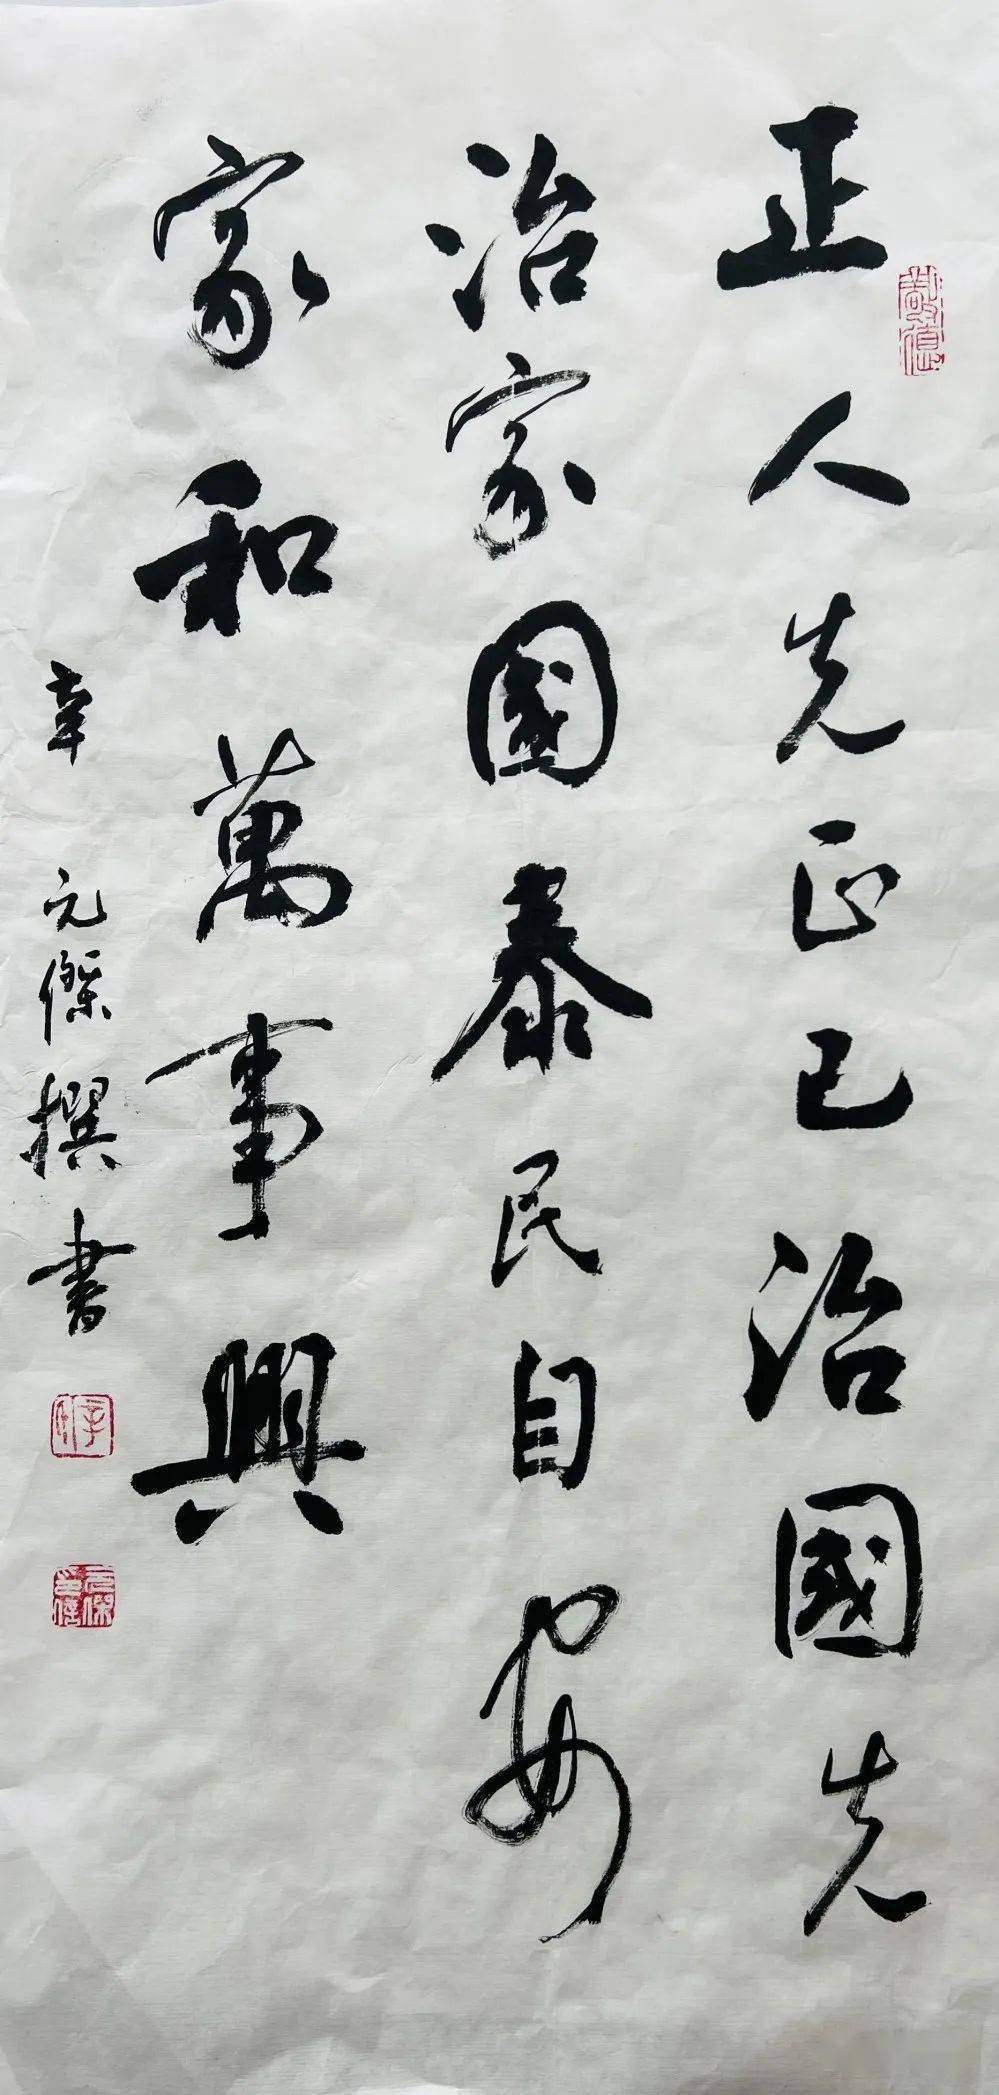 正人先正己治國先
治家國泰民自安
家和萬事興
辛 元傑撰書